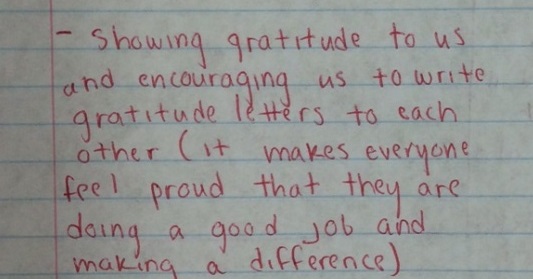 - Showing gratitude to us
and encouraging us to write
gratitude letters to each
other (it makes everyone
feel proud that they are
doing a good job and
making a difference)